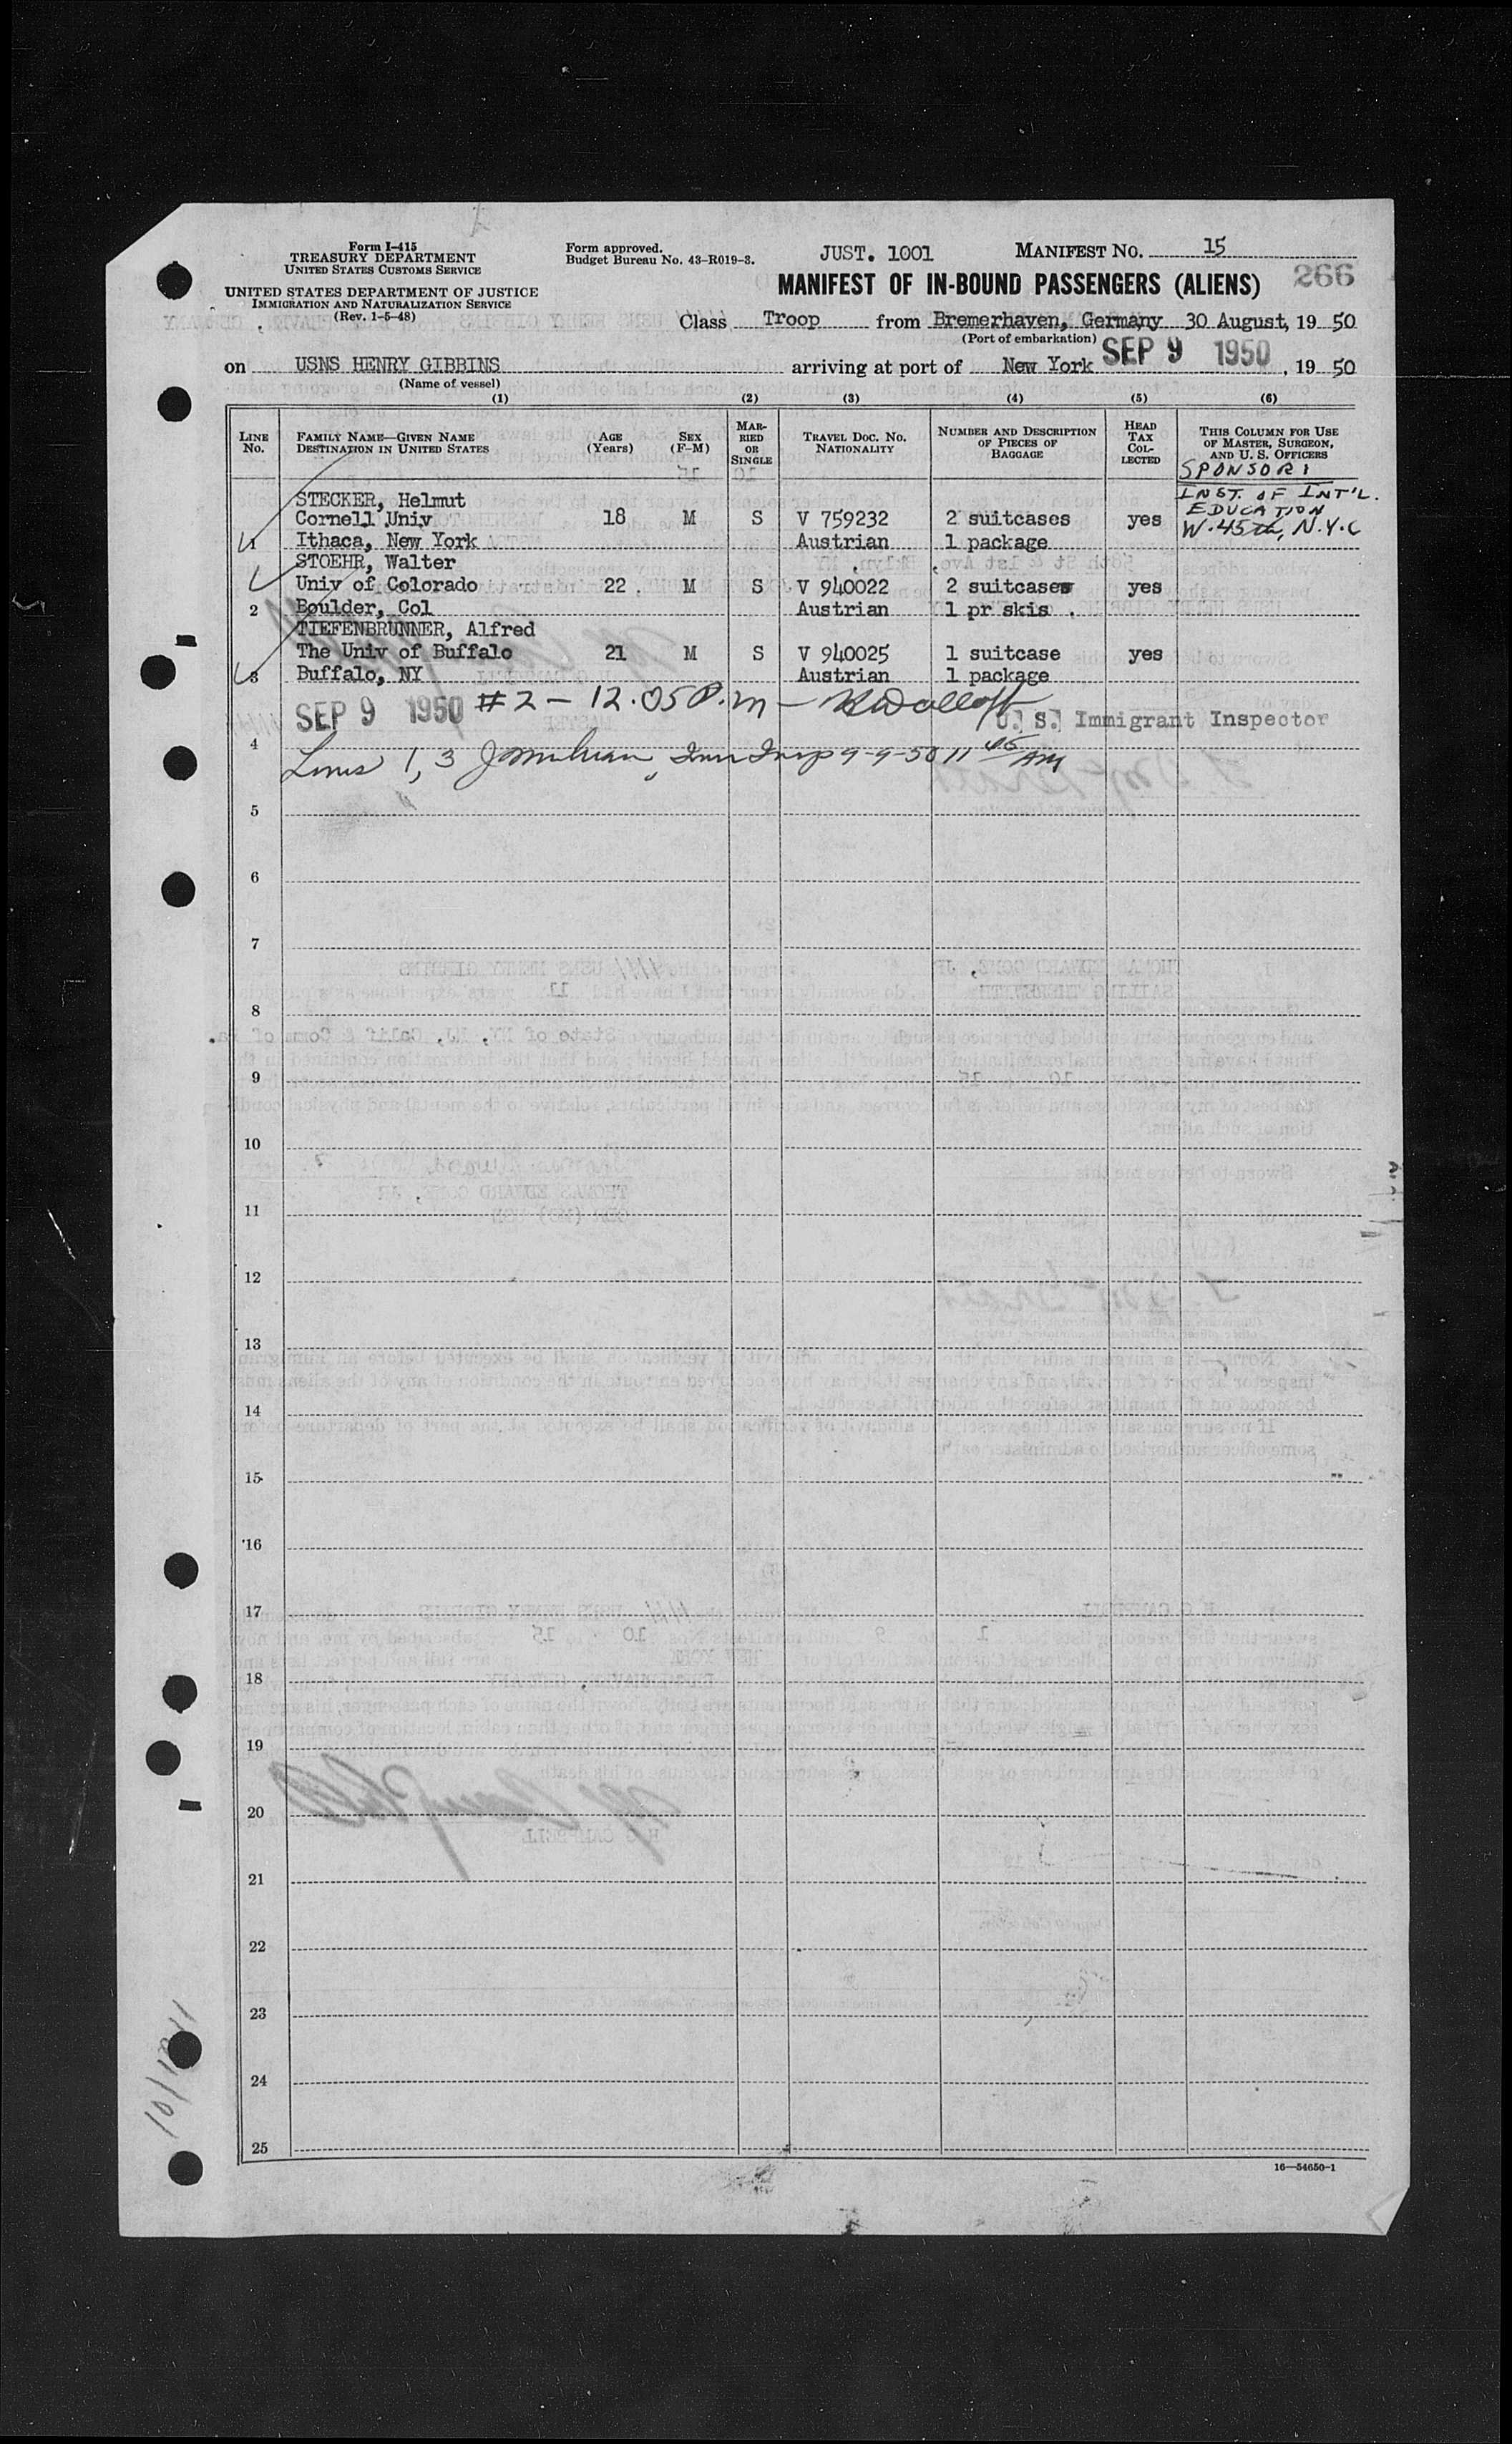 Form I-415
TREASURY DEPARTMENT
UNITED STATES CUSTOMS SERVICE
UNITED STATES DEPARTMENT OF JUSTICE
IMMIGRATION AND NATURALIZATION SERVICE
(Rev. 1-5-48)
Form approved.
Budget Bureau No. 43-R019-3.
JUST. 1001 MANIFEST NO. 15
MANIFEST OF IN-BOUND PASSENGERS (ALIENS) 266
Class Troop from Bremerhaven, Germany 30 August, 19 50
(Port of embarkation)
on USNS HENRY GIBBINS arriving at port of New York SEP 9 1950, 19 50
(Name of vessel)
(1) (2) (3) (4) (5) (6)
LINE No. FAMILY NAME—GIVEN NAME DESTINATION IN UNITED STATES AGE (Years) SEX (F-M) MARRIED OR SINGLE TRAVEL DOC. NO. NATIONALITY NUMBER AND DESCRIPTION OF PIECES OF BAGGAGE HEAD TAX COLLECTED THIS COLUMN FOR USE OF MASTER, SURGEON, AND U. S. OFFICERS
SPONSOR:
INST. OF INT'L.
EDUCATION
W. 45th, N.Y.C
STECKER, Helmut
Cornell Univ 18 M S V 759232 2 suitcases yes
1 Ithaca, New York Austrian 1 package
STOEHR, Walter
Univ of Colorado 22 M S V 940022 2 suitcases yes
2 Boulder, Col Austrian 1 pr skis
TIEFENBRUNNER, Alfred
The Univ of Buffalo 21 M S V 940025 1 suitcase yes
3 Buffalo, NY Austrian 1 package
SEP 9 1950 #2 - 12.05 P.m -
U. S. Immigrant Inspector
4
Lines 1, 3 Imm Insp 9-9-50 11 45 AM
5
6
7
8
9
10
11
12
13
14
15
16
17
18
19
20
21
22
23
24
25
16—54650-1